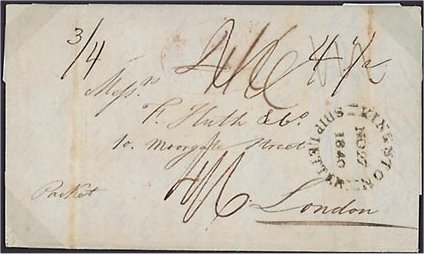 3/4
4/6 4 1/2
Messrs
F. Huth & Co.
10. Moorgate Street
Packet
4/6
London
KINGSTON
SHIP LETTER
NO 27
1840